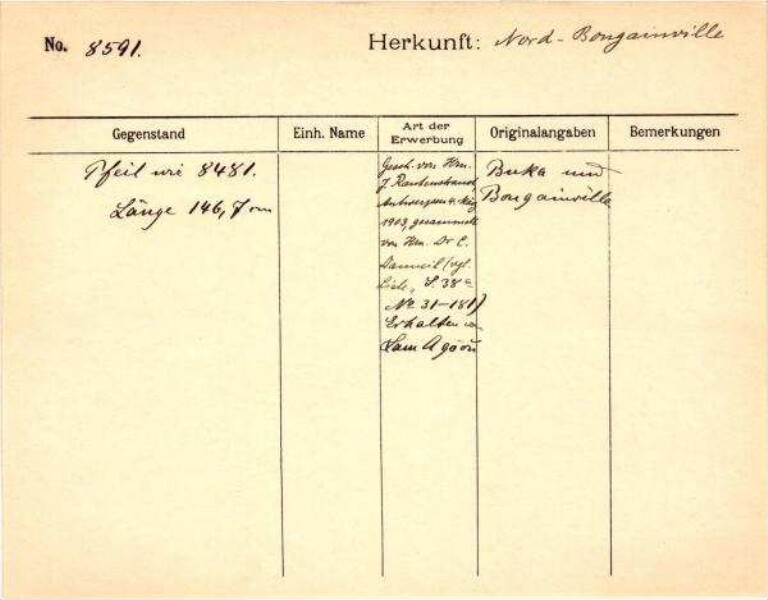 No. 8591.
Herkunft: Nord-Bougainville
Gegenstand
Einh. Name
Art der Erwerbung
Originalangaben
Bemerkungen
Pfeil wie 8481.
Länge 146,7 cm
Gesch. von Hrn.
J. Rautenstrauch,
Antwerpen 4. 
1903, gesammelt
von Hrn. Dr C.
Danneil (vgl.
Liste, S. 38
No 31-181)
Erhalten von
Sam Agoou
Buka und
Bougainville